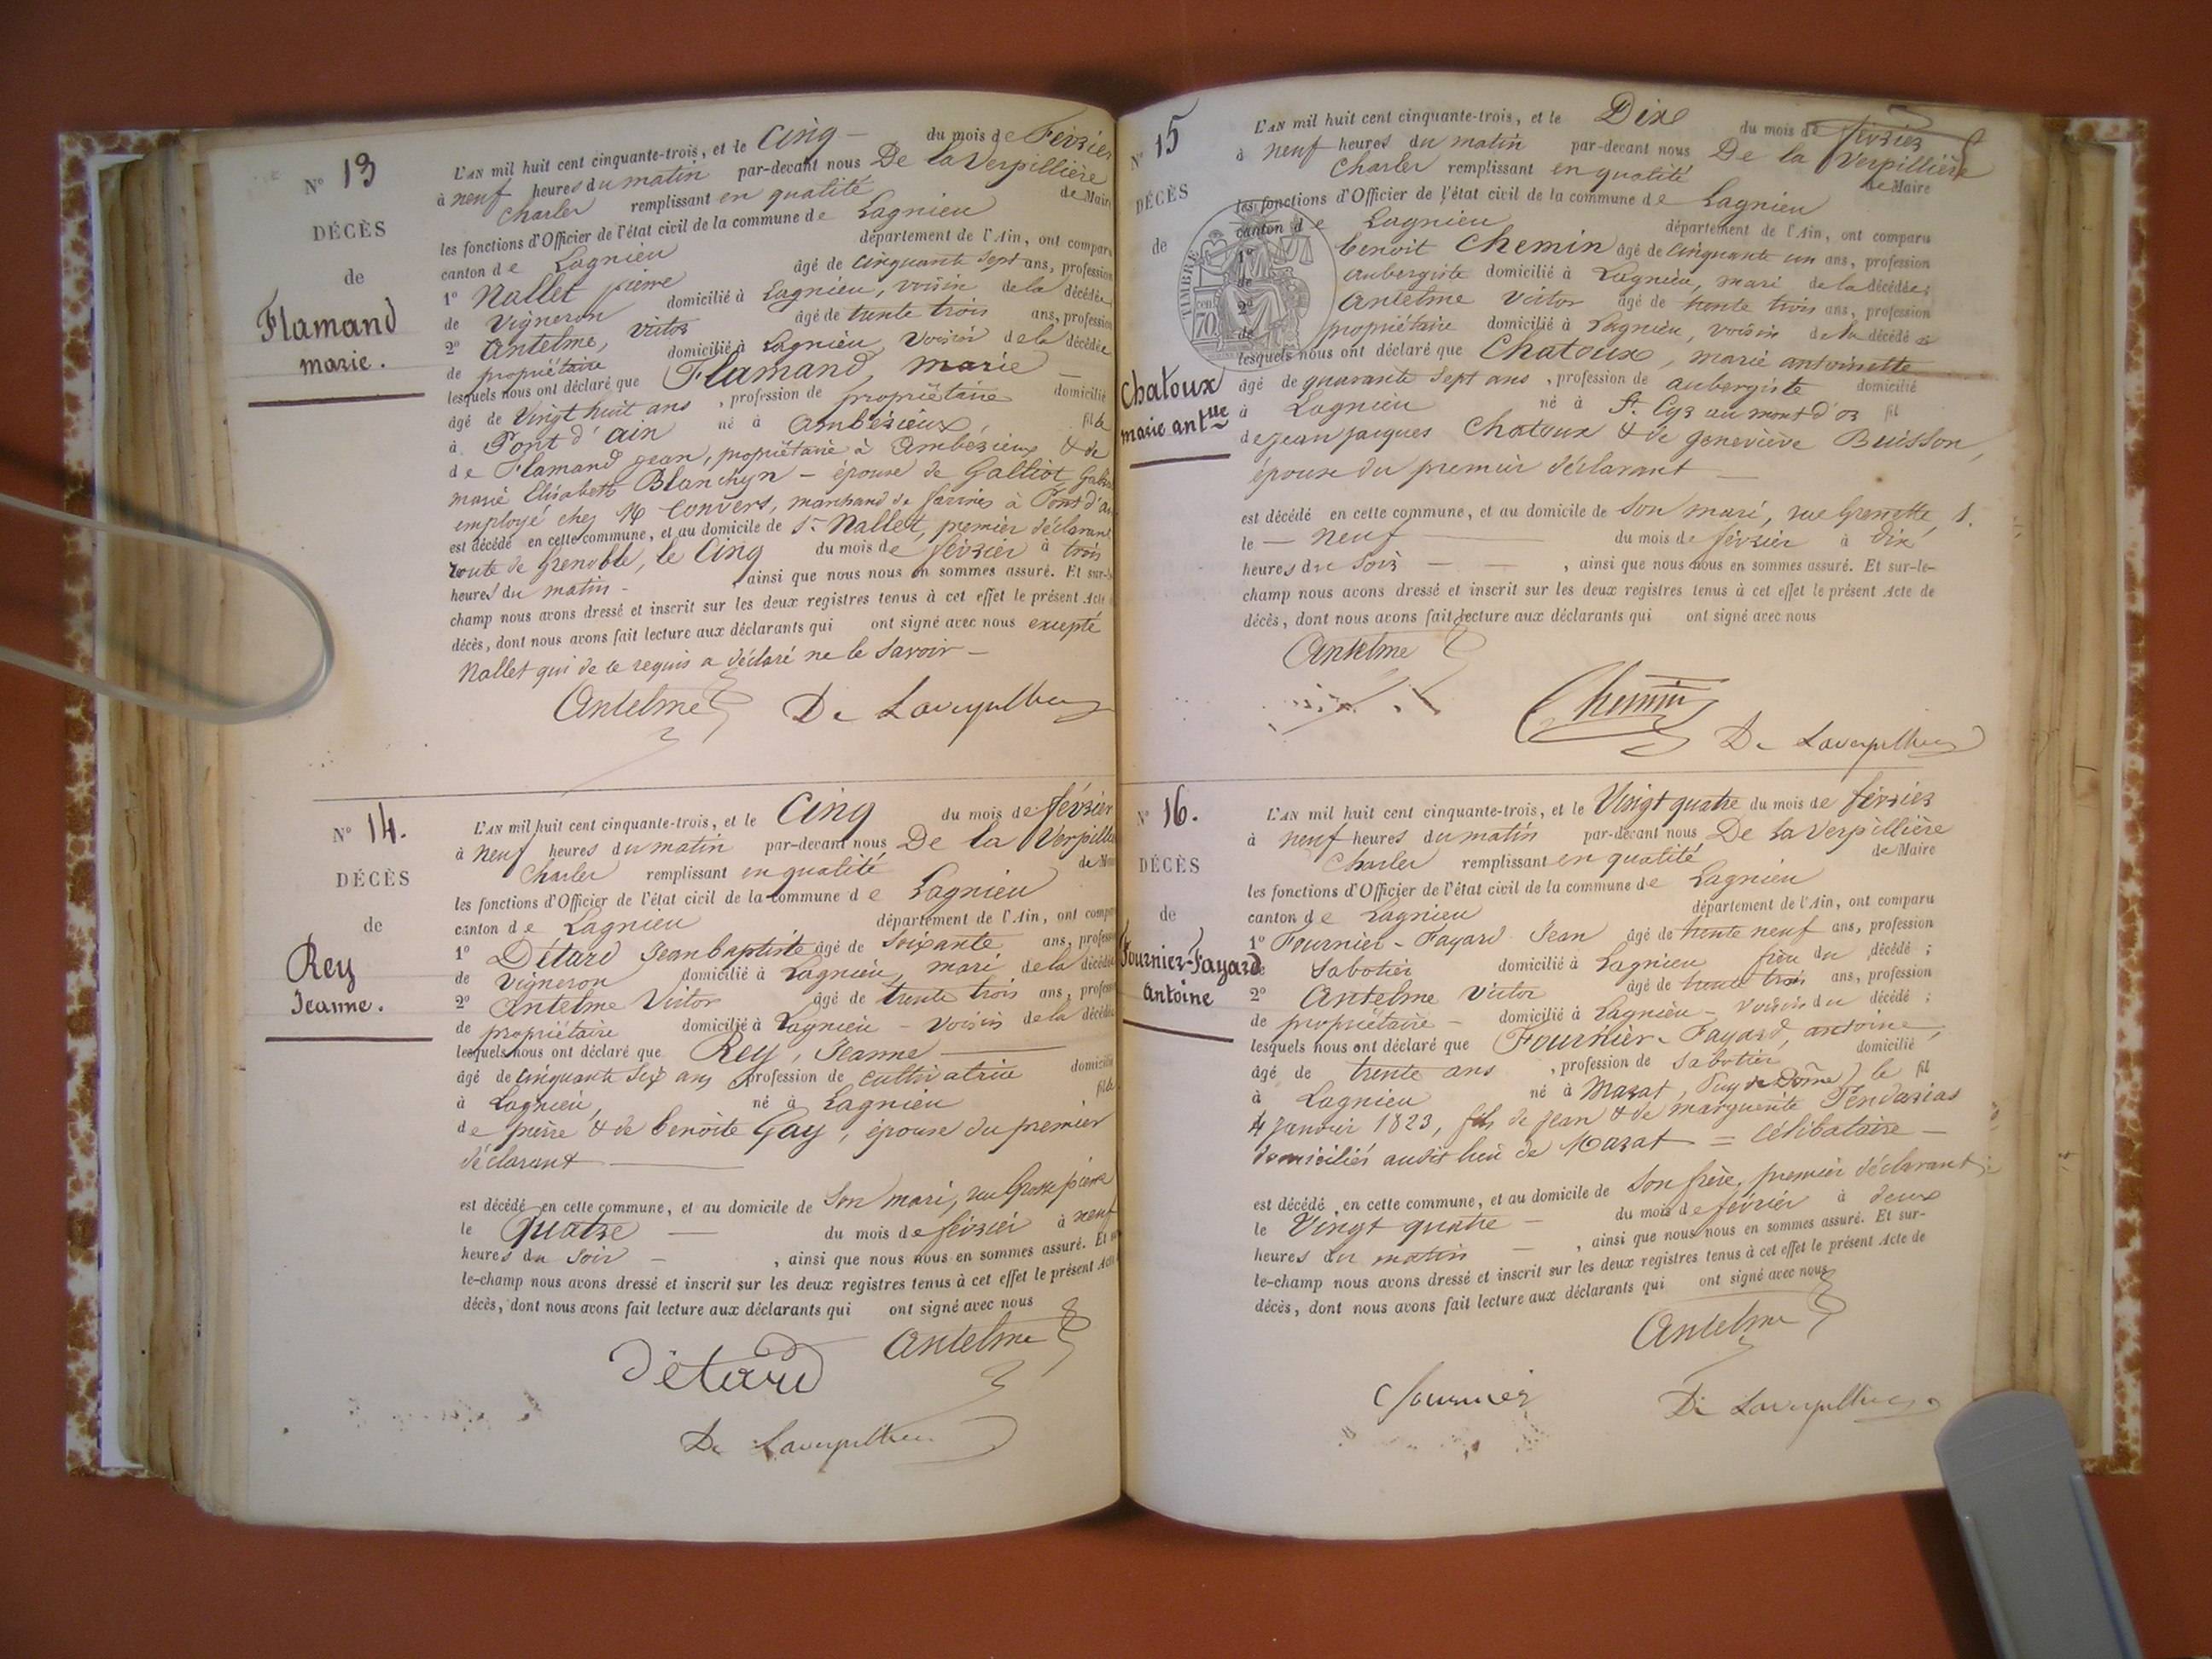 N° 13
DÉCÈS
de
Flamand
marie.
L'AN mil huit cent cinquante-trois, et le Cinq du mois de Février
à neuf heures du matin par-devant nous De la Verpillière
Charles remplissant en qualité de Maire
les fonctions d'Officier de l'état civil de la commune de Lagnieu
canton de Lagnieu département de l'Ain, ont comparu
1° Nallet pierre âgé de cinquante sept ans, profession
de Vigneron domicilié à Lagnieu, voisin de la décédée
2° Antelme, victor âgé de trente trois ans, profession
de propriétaire domicilié à Lagnieu, voisin de la décédée
lesquels nous ont déclaré que Flamand, marie —
âgé de vingt huit ans, profession de propriétaire domicilié
à Pont d'ain né à Ambérieux, fille
de Flamand jean, propriétaire à Ambérieux & de
marie Elisabeth Blanchyn - épouse de Galliot
employé chez M Convers, marchand de farines à Pont d'
est décédé en cette commune, et au domicile de Sr Nallet, premier déclarant
route de grenoble, le Cinq du mois de février à trois
heures du matin - , ainsi que nous nous en sommes assuré. Et sur-le
champ nous avons dressé et inscrit sur les deux registres tenus à cet effet le présent Acte
décès, dont nous avons fait lecture aux déclarants qui ont signé avec nous excepté
Nallet qui de ce requis a déclaré ne le savoir -
Antelme De Laverpilliere
N° 14.
DÉCÈS
de
Rey
Jeanne.
L'AN mil huit cent cinquante-trois, et le Cinq du mois de février
à neuf heures du matin par-devant nous De la Verpilliè
Charles remplissant en qualité de M
les fonctions d'Officier de l'état civil de la commune de Lagnieu
canton de Lagnieu département de l'Ain, ont comparu
1° Détard Jean baptiste âgé de soixante ans, profession
de vigneron domicilié à Lagnieu, mari de la décédée
2° Antelme Victor âgé de trente trois ans, profession
de propriétaire domicilié à Lagnieu - voisin de la décédée
lesquels nous ont déclaré que Rey, Jeanne —
âgé de cinquante six ans profession de cultivatrice domicilié
à Lagnieu, né à Lagnieu fille
de pierre & de benoîte Gay, épouse du premier
déclarant —
est décédé en cette commune, et au domicile de son mari, rue Grosse pierre
le quatre — du mois de février à neuf
heures du soir - , ainsi que nous nous en sommes assuré. Et sur
le-champ nous avons dressé et inscrit sur les deux registres tenus à cet effet le présent Acte
décès, dont nous avons fait lecture aux déclarants qui ont signé avec nous
Détard Antelme
De Laverpilliere
N° 15
DÉCÈS
de
Chatoux
marie anttte
TIMBRE
70
L'AN mil huit cent cinquante-trois, et le Dix du mois de février
à neuf heures du matin par-devant nous De la Verpillière
Charles remplissant en qualité de Maire
les fonctions d'Officier de l'état civil de la commune de Lagnieu
canton de Lagnieu département de l'Ain, ont comparu
1° benoit Chemin âgé de cinquante un ans, profession
de aubergiste domicilié à Lagnieu, mari de la décédée;
2° Antelme victor âgé de trente trois ans, profession
de propriétaire domicilié à Lagnieu, voisin de la décédée
lesquels nous ont déclaré que Chatoux, marie antoinette
âgé de quarante sept ans, profession de aubergiste domicilié
à Lagnieu né à St. Cyr au mont d'or fil
de jean jacques Chatoux & de geneviève Buisson,
épouse du premier déclarant —
est décédé en cette commune, et au domicile de son mari, rue Grenette, 1.
le — neuf — du mois de février à dix
heures du soir — — , ainsi que nous nous en sommes assuré. Et sur-le-
champ nous avons dressé et inscrit sur les deux registres tenus à cet effet le présent Acte de
décès, dont nous avons fait lecture aux déclarants qui ont signé avec nous
Antelme
Chemin
De Laverpilliere
N° 16.
DÉCÈS
de
Fournier-Fayard
Antoine
L'AN mil huit cent cinquante-trois, et le Vingt quatre du mois de février
à neuf heures du matin par-devant nous De la Verpillière
Charles remplissant en qualité de Maire
les fonctions d'Officier de l'état civil de la commune de Lagnieu
canton de Lagnieu département de l'Ain, ont comparu
1° Fournier-Fayard Jean âgé de trente neuf ans, profession
de Sabotier domicilié à Lagnieu frère du décédé;
2° Antelme Victor âgé de trente trois ans, profession
de propriétaire - domicilié à Lagnieu - voisin du décédé;
lesquels nous ont déclaré que Fournier-Fayard, antoine,
âgé de trente ans, profession de sabotier domicilié
à Lagnieu né à Mazat, (Puy de Dôme) le fil
4 janvier 1823, fils de Jean & de marguerite Tendarias
domiciliés audit lieu de Mazat = célibataire —
est décédé en cette commune, et au domicile de son frère, premier déclarant;
le Vingt quatre — du mois de février à deux
heures du matin — , ainsi que nous nous en sommes assuré. Et sur-
le-champ nous avons dressé et inscrit sur les deux registres tenus à cet effet le présent Acte de
décès, dont nous avons fait lecture aux déclarants qui ont signé avec nous
Antelme
fournier De Laverpilliere